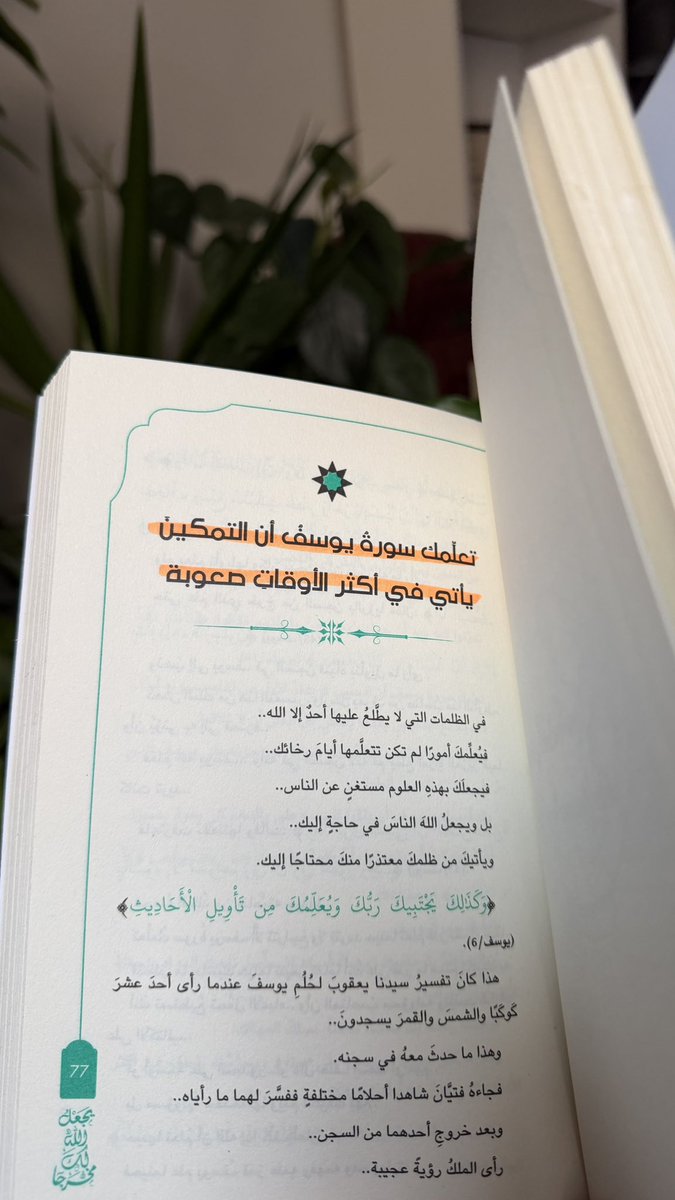 تعلّمك سورةُ يوسفُ أن التمكينَ
يأتي في أكثر الأوقاتِ صعوبة
في الظلمات التي لا يطَّلعُ عليها أحدٌ إلا الله..
فيُعلِّمكَ أمورًا لم تكن تتعلَّمها أيامَ رخائك..
فيجعلَكَ بهذهِ العلوم مستغنٍ عن الناس..
بل ويجعلُ اللهَ الناسَ في حاجةٍ إليك..
ويأتيكَ من ظلمكَ معتذرًا منكَ محتاجًا إليك.
﴿وَكَذَلِكَ يَجْتَبِيكَ رَبُّكَ وَيُعَلِّمُكَ مِن تَأْوِيلِ الْأَحَادِيثِ﴾
(يوسف/6).
هذا كانَ تفسيرُ سيدنا يعقوبَ لحُلُمِ يوسفَ عندما رأى أحدَ عشرَ
كَوكَبًا والشمسَ والقمرَ يسجدونَ..
وهذا ما حدثَ معهُ في سجنه.
فجاءهُ فتيَّانَ شاهدا أحلامًا مختلفةٍ ففسَّرَ لهما ما رأياه..
وبعد خروجِ أحدهما من السجن..
رأى الملكُ رؤيةً عجيبة..
77
يجعل
الله
لك
مخرجا